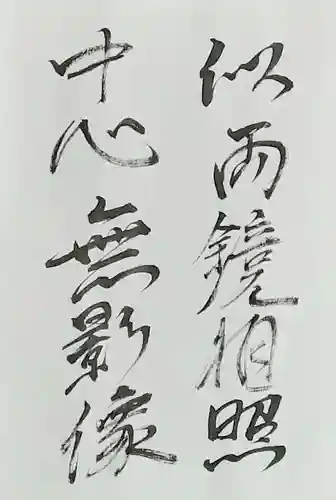 似两鏡相照
中心無影像